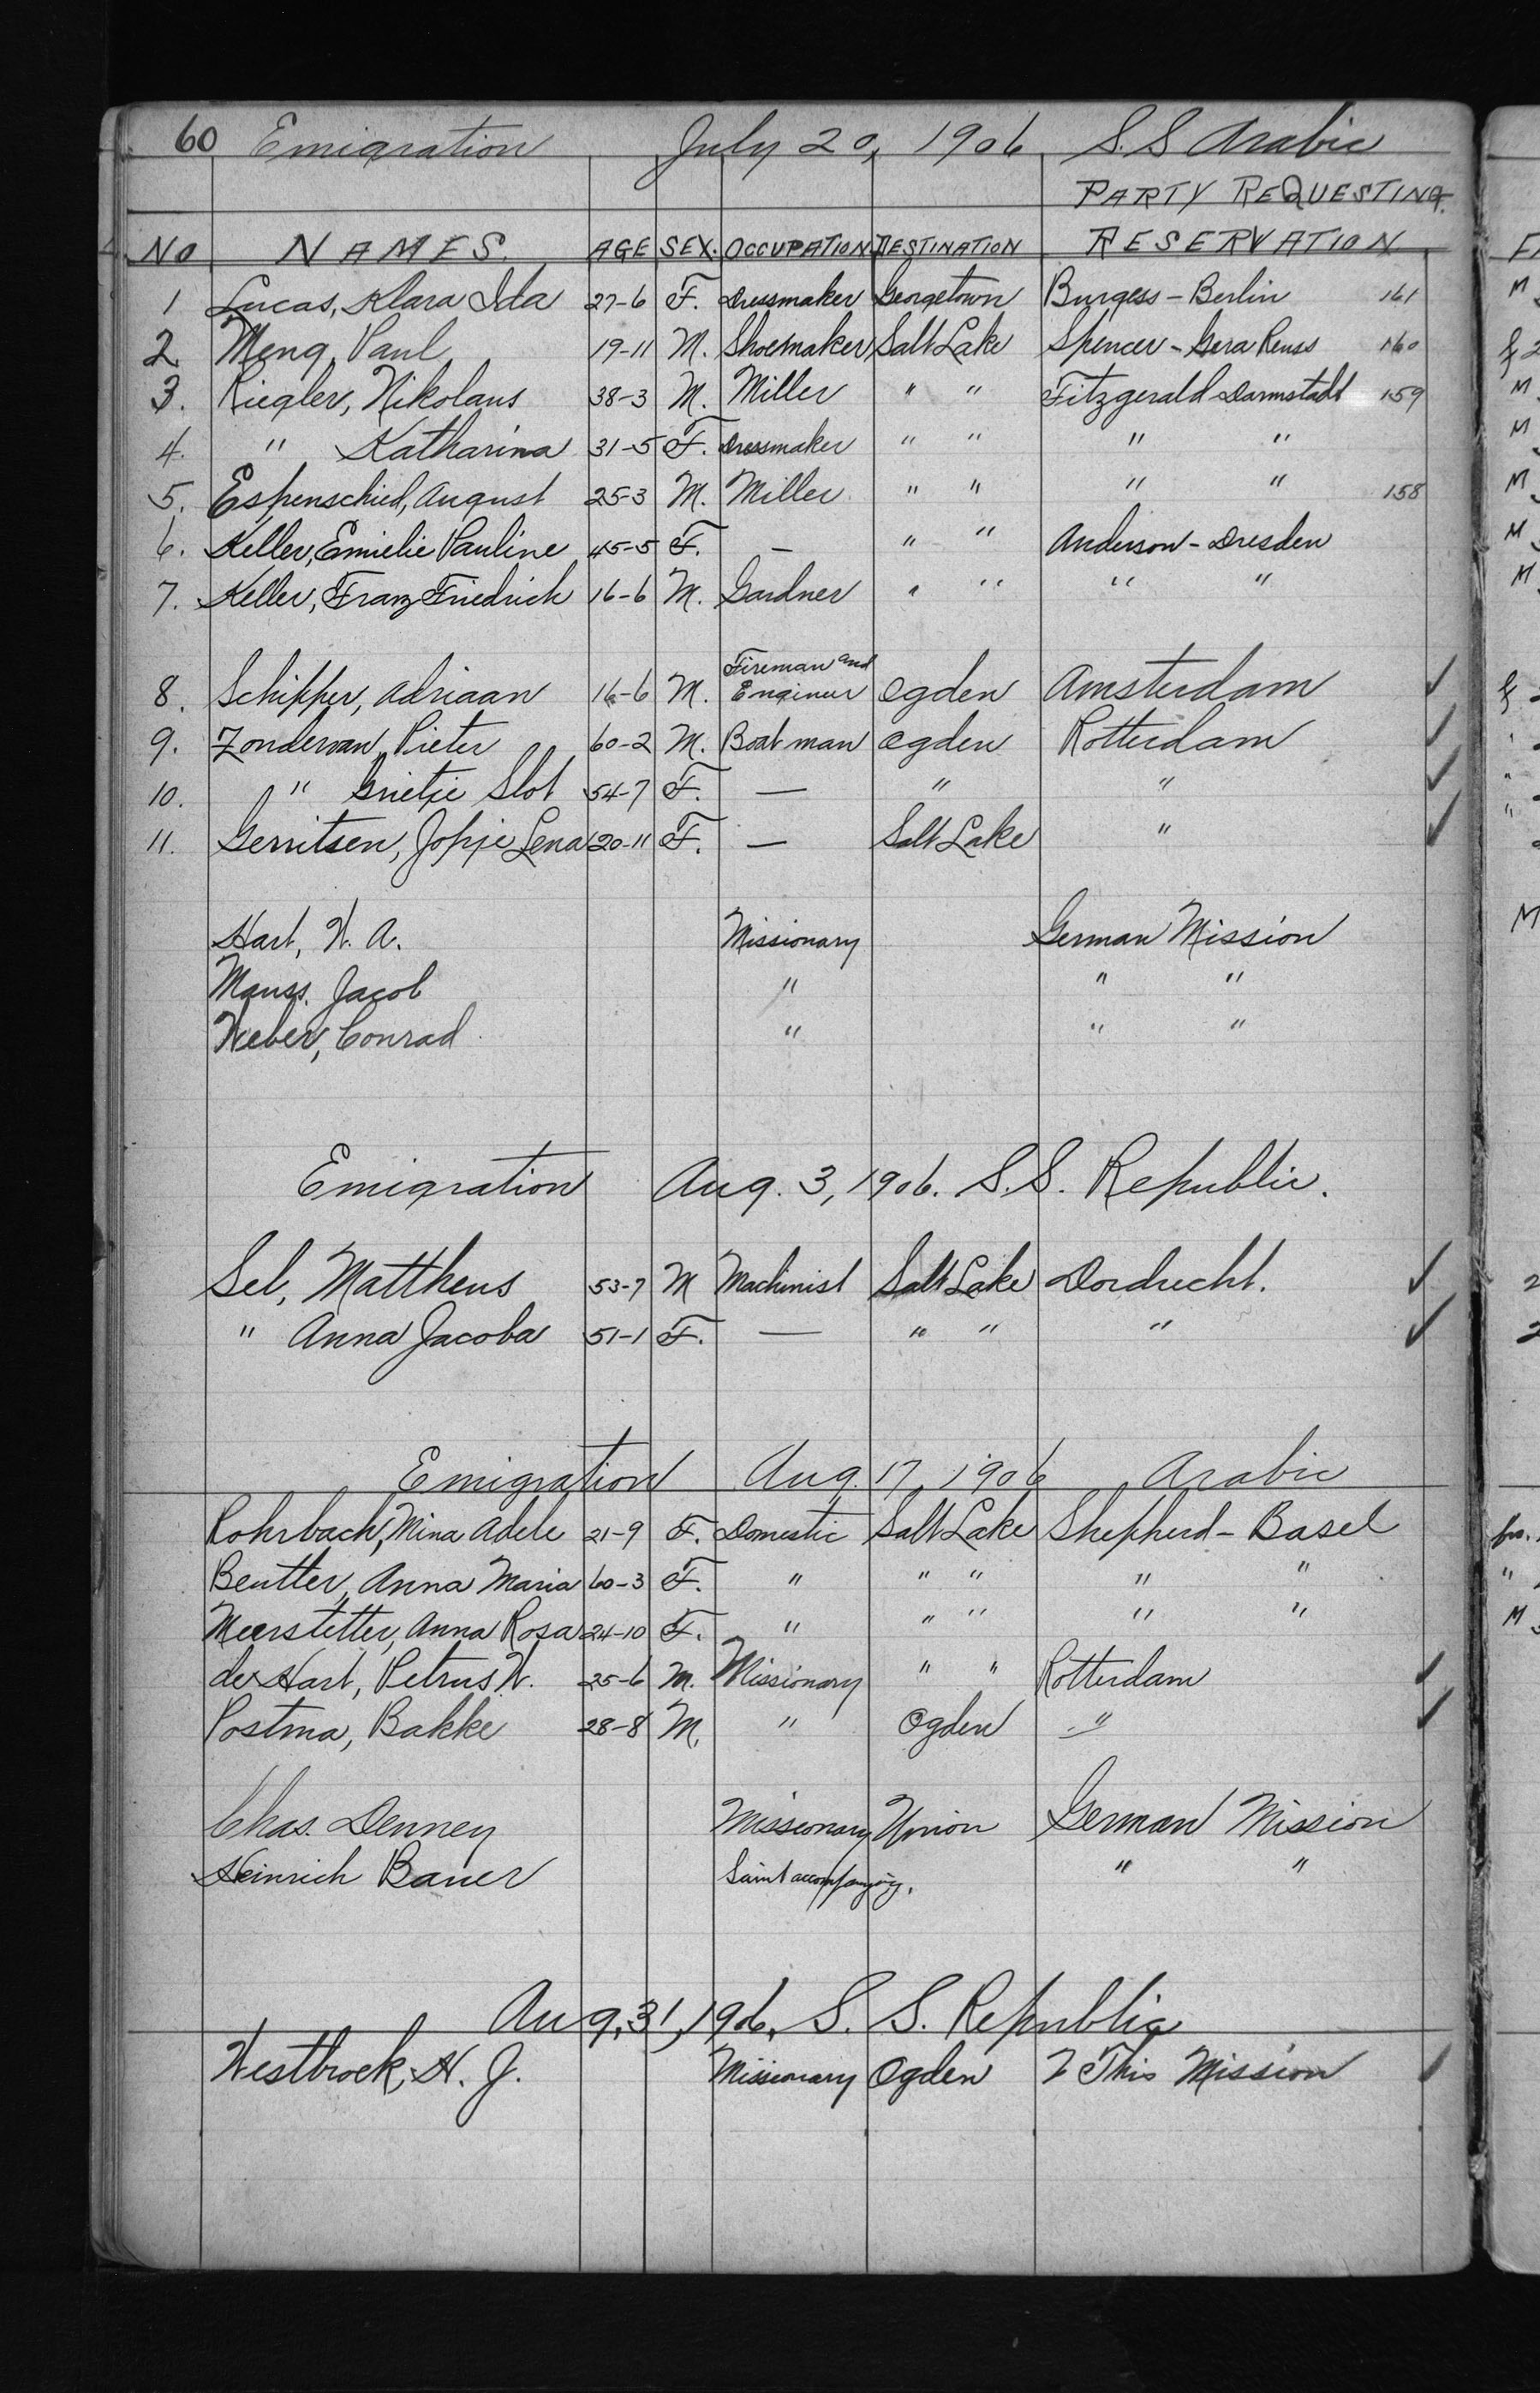 60 Emigration July 20, 1906 S.S Arabic
PARTY REQUESTING
NO NAMES. AGE SEX. OCCUPATION DESTINATION RESERVATION
1 Lucas, Klara Ida 27-6 F. Dressmaker Georgetown Burgess - Berlin 161
2 Meng, Paul 19-11 M. Shoemaker Salt Lake Spencer - Gera Reuss 160
3. Riegler, Nikolaus 38-3 M. Miller " " Fitzgerald Darmstadt 159
4. " Katharina 31-5 F. Dressmaker " " " "
5. Espenschied, August 25-3 M. Miller " " " " 158
6. Keller, Emielie Pauline 45-5 F. — " " Anderson - Dresden
7. Keller, Franz Friedrich 16-6 M. Gardner " " " "
8. Schipper, Adriaan 16-6 M. Fireman and Engineer Ogden Amsterdam ✓
9. Zondervan, Pieter 60-2 M. Boatman Ogden Rotterdam ✓
10. " Grietje Slot 54-7 F. — " " ✓
11. Gerritsen, Jopje Lena 20-11 F. — Salt Lake " ✓
Hart, W. A. Missionary German Mission
Mauss, Jacob " " "
Weber, Conrad " " "
Emigration Aug. 3, 1906. S.S. Republic.
Sel, Mattheus 53-7 M Machinist Salt Lake Dordrecht. ✓
" Anna Jacoba 51-1 F. — " " " ✓
Emigration Aug. 17, 1906 Arabic
Rohrbach, Mina Adele 21-9 F. Domestic Salt Lake Shepherd - Basel
Beutter, Anna Maria 60-3 F. " " " " "
Meerstetter, Anna Rosa 24-10 F. " " " " "
de Hart, Petrus W. 25-6 M. Missionary " " Rotterdam ✓
Postma, Bakke 28-8 M. " Ogden " ✓
Chas. Denney Missionary Union German Mission
Heinrich Bauer Saint accompanying. " "
Aug, 31, 1906, S. S. Republic
Westbroek, H. J. Missionary Ogden This Mission ✓